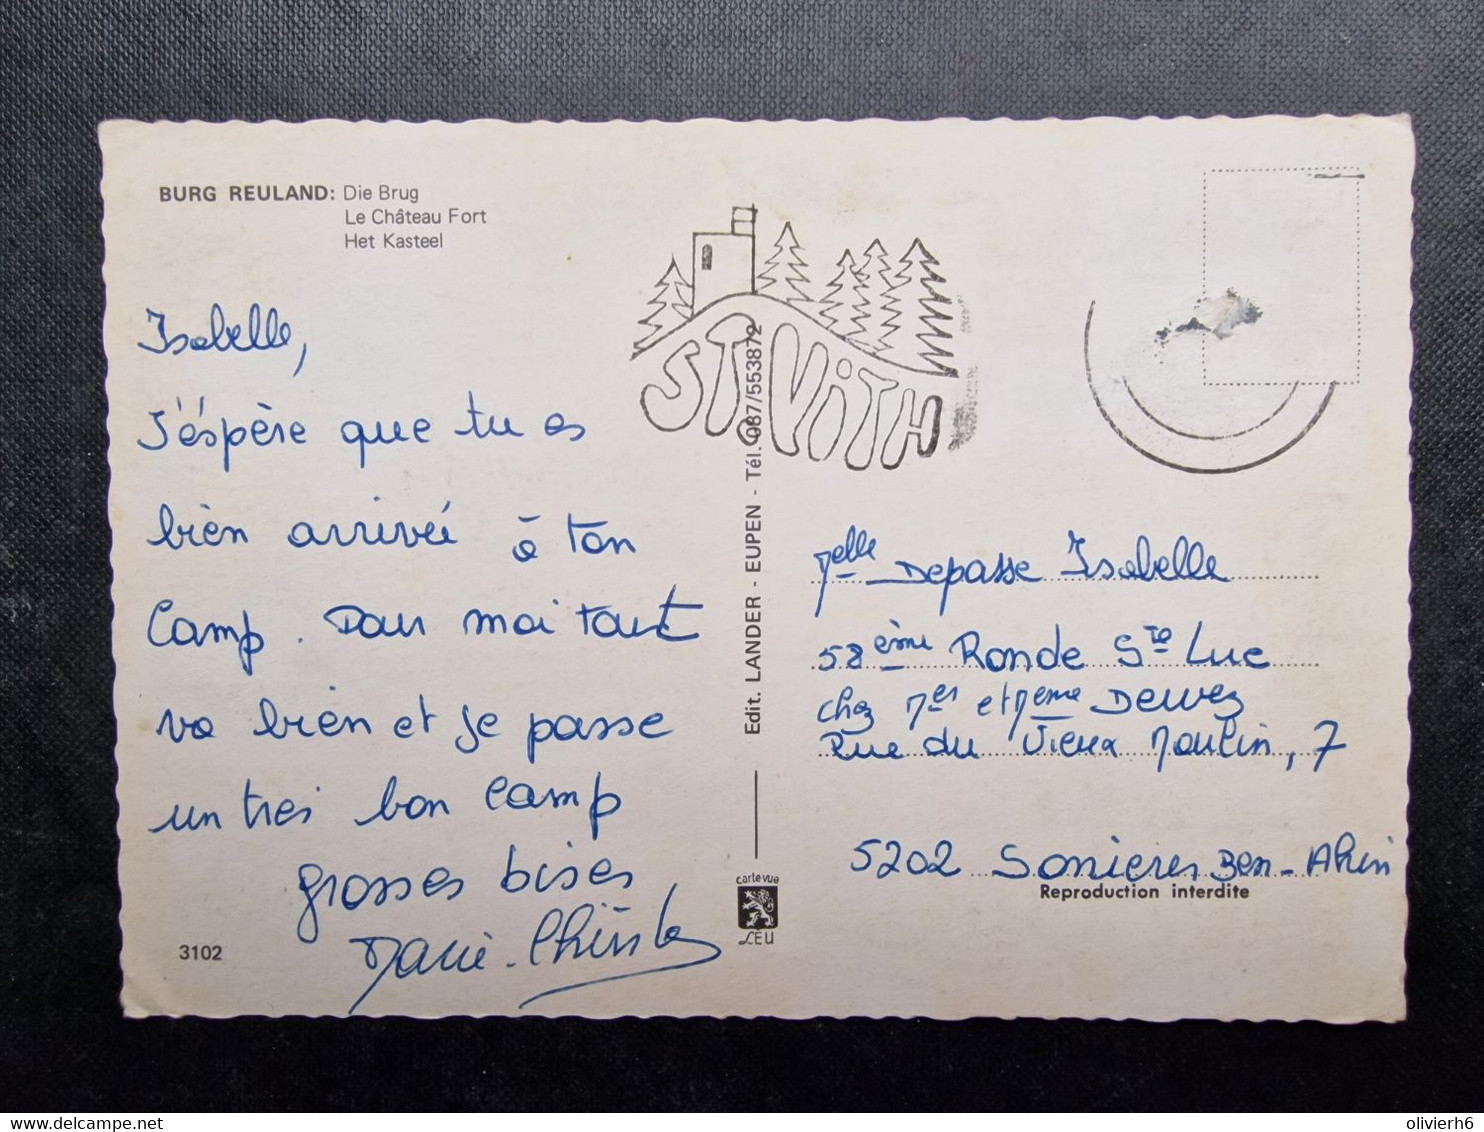 BURG REULAND: Die Brug
Le Château Fort
Het Kasteel
Isabelle,
J'éspère que tu es
bien arrivée à ton
Camp. Pour moi tout
va bien et je passe
un tres bon camp
grosses bises
Marie-Christine
3102
ST. VITH
Edit. LANDER - EUPEN - Tél. 087/553872
carte vue
LEU
Melle Depasse Isabelle
58ème Ronde Ste Luc
chez Mer et Meme Dewez
Rue du Vieux Moulin, 7
5202 Sonieres Ben-Ahin
Reproduction interdite
www.delcampe.net
olivierh6